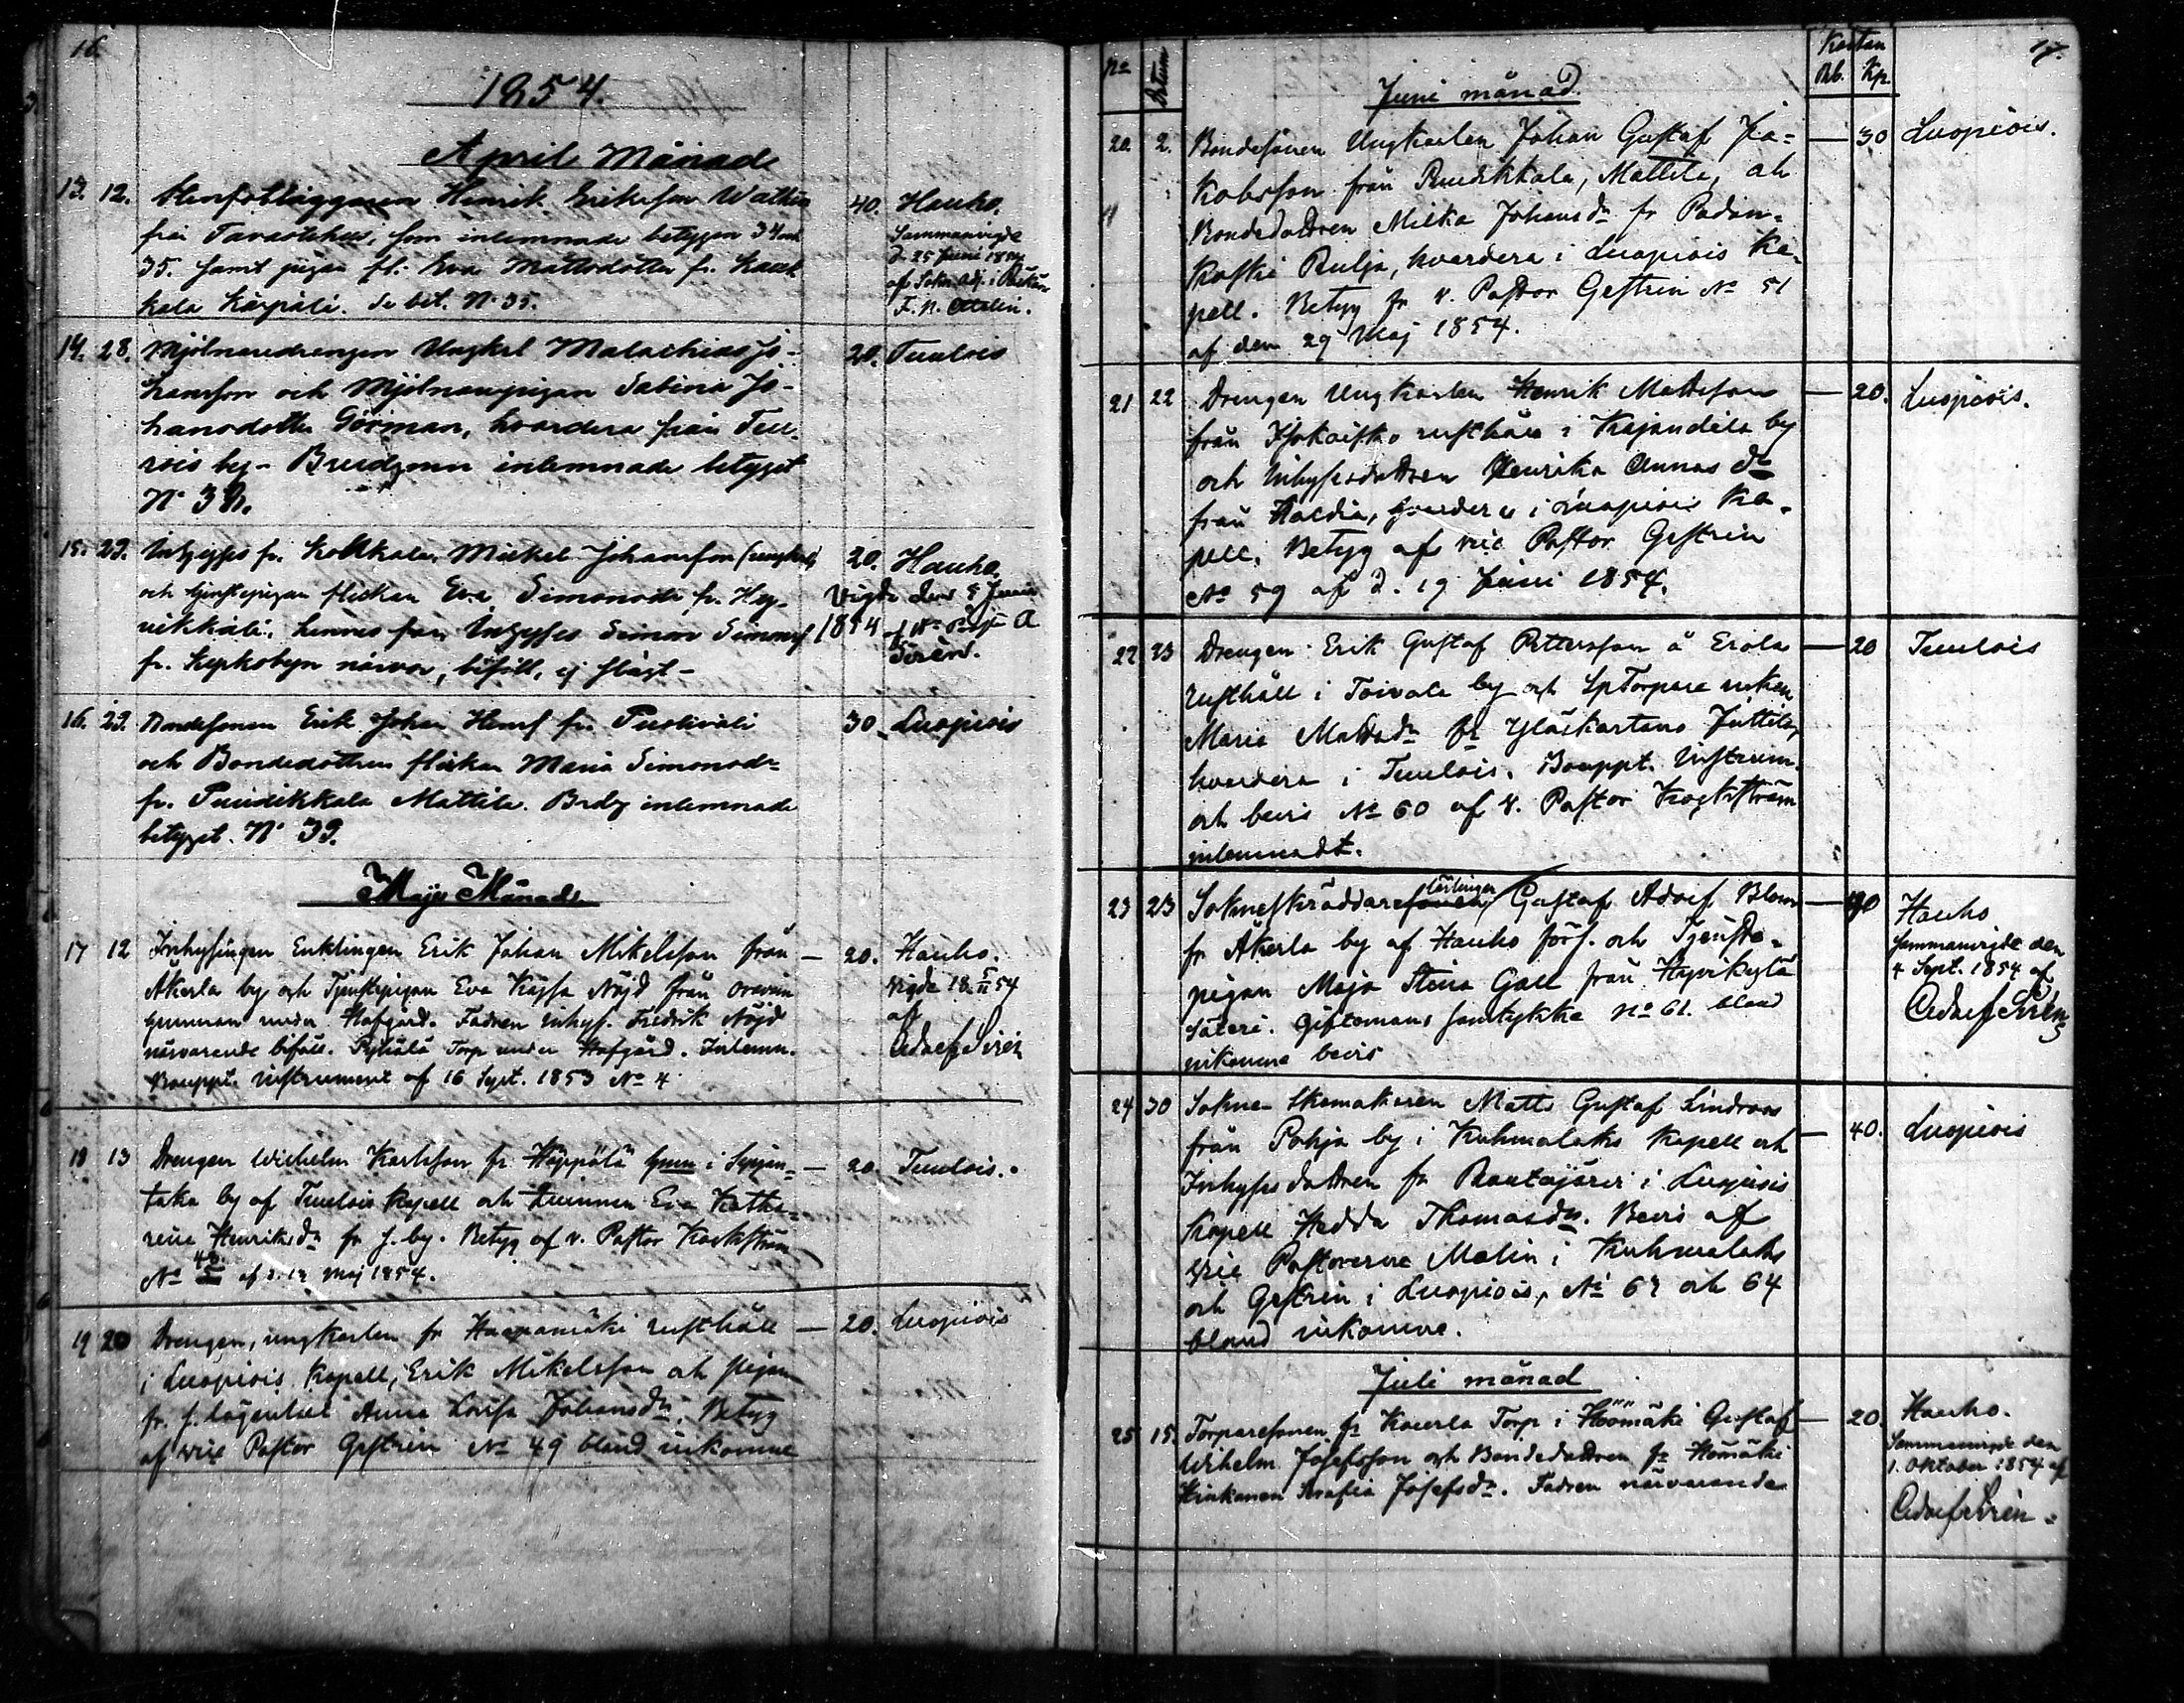 16.
1854.
April Månad
13. 12. Henrik Eriksson
från Tavastehus, som inlemnade betygen 34 och
35. samt pigan fl: Eva Mattsdotter fr.
Kärpälä. Se bet. N:o 35.
40. Hauho.
Sammanvigde
d. 25 Juni 1854
af Sokn. Adj. i
14. 28. Mjölnaredrengen Ungkrl Malachias Jo-
hansson och Mjölnarepigan Sabina Jo-
hansdotter Görman, hvardera från Tuu-
lois by. Brudgmn inlemnade betyget
N:o 38.
20. Tuulois
15. 29. Inhyses fr. Mickel Johansson (ungkrl)
och tjenstepigan flickan Eva Simonsdr fr. Hy-
vikkälä, hennes far Inhyses Simon Simonss
fr. Lepkobyn närvar, biföll, ej slägt -
20. Hauho.
Vigde den 5 Junii
1854 af A
Sirén.
16. 29. Bondesonen Erik Johan Henrss fr.
och Bondedottren flickan Maria Simonsdr
fr. Puutikkala Mattila. Brdg inlemnade
betyget. N:o 39.
30. Luopiois
Maji Månad
17 12 Inhysingen Enklingen Erik Johan Mikelsson från
Äkerla by och Tjenstepigan Eva Kajsa Nöjd från
under Hofgård. Fadren Inhys. Fredrik Nöjd
närvarande biföll. Torp under Hofgård. Inlemn.
Bouppt. instrument af 16 Sept. 1853 No 4
— 20. Hauho.
Vigde 18 54
af
Adolf Sirén
18 13 Drengen Wilhelm Karlsson fr Höppölä i Syrjän-
taka by af Tuulois Kapell och Quinnan Eva Katha-
rina Henriksdr fr s. by. Betyg af v. Pastor Kockström
No 48 af d. 12 Maj 1854.
— 20. Tuulois.
19 20 Drengen, ungkarlen fr Haapamäki rusthåll
i Luopiois Kapell, Erik Mikelsson och pigan
fr. s. lägenhet Anna Lovisa Johansdr. Betyg
af vice Pastor Gestrin No 49 bland inkomne
— 20. Luopiois
No Datum Kostan Rb. Kp. 17.
Juni månad
20. 2. Bondesonen Ungkarlen Johan Gustaf Ja-
kobsson från Puutikkala, Mattila, och
Bondedottren Milka Johansdr fr Padan-
koski Pulja, hvardera i Luopiois Ka-
pell. Betyg fr v. Pastor Gestrin No 51
af den 29 Maj 1854.
— 30 Luopiois.
21 22 Drengen Ungkarlen Henrik Mattsson
från Isokaisko rusthåll i Kajandila by
och Inhysesdottren Henrika Annas dr
från Haldia, hvardera i Luopiois Ka-
pell. Betyg af vice Pastor Gestrin
No 59 af d. 19 Juni 1854.
— 20. Luopiois.
22 23 Drengen Erik Gustaf Pettersson å Erola
rusthåll i Toivala by och Sp Torpare enkan
Maria Mattsdr fr Yläkartano Juttila,
hvardera i Tuulois. Bouppt. Instrum.
och bevis No 60 af v. Pastor Kockström
inlemnadt.
— 20 Tuulois
23 23 Sokneskräddaresonen lärlingen Gustaf Adolf Blom
fr Äkerla by af Hauho förs. och Tjenste-
pigan Maja Stina Gall från Hyvikkylä
Säteri. Giftomans samtykke No 61. bland
inkomne bevis
Hauho
Sammanvigde den
4 Sept. 1854 af
Adolf Sirén
24 30 Sokne Skomakaren Matts Gustaf Lindroos
från Pohja by i Kuhmalaks Kapell och
Inhyses dottren fr Rautajärvi i Luopiois
Kapell Hedda Thomasdr. Bevis af
vice Pastorerne Malin i Kuhmalaks
och Gestrin i Luopiois, No 63 och 64
bland inkomne.
— 40. Luopiois
Juli månad
25 15. Torparesonen fr Kaurla Torp i Hoomäki Gustaf
Wilhelm Josefsson och Bondedottren fr Hömäki
Serafia Josefsdr. Fadren närvarande
— 20. Hauho.
Sammanvigde den
1. Oktober 1854 af
Adolf Sirén.